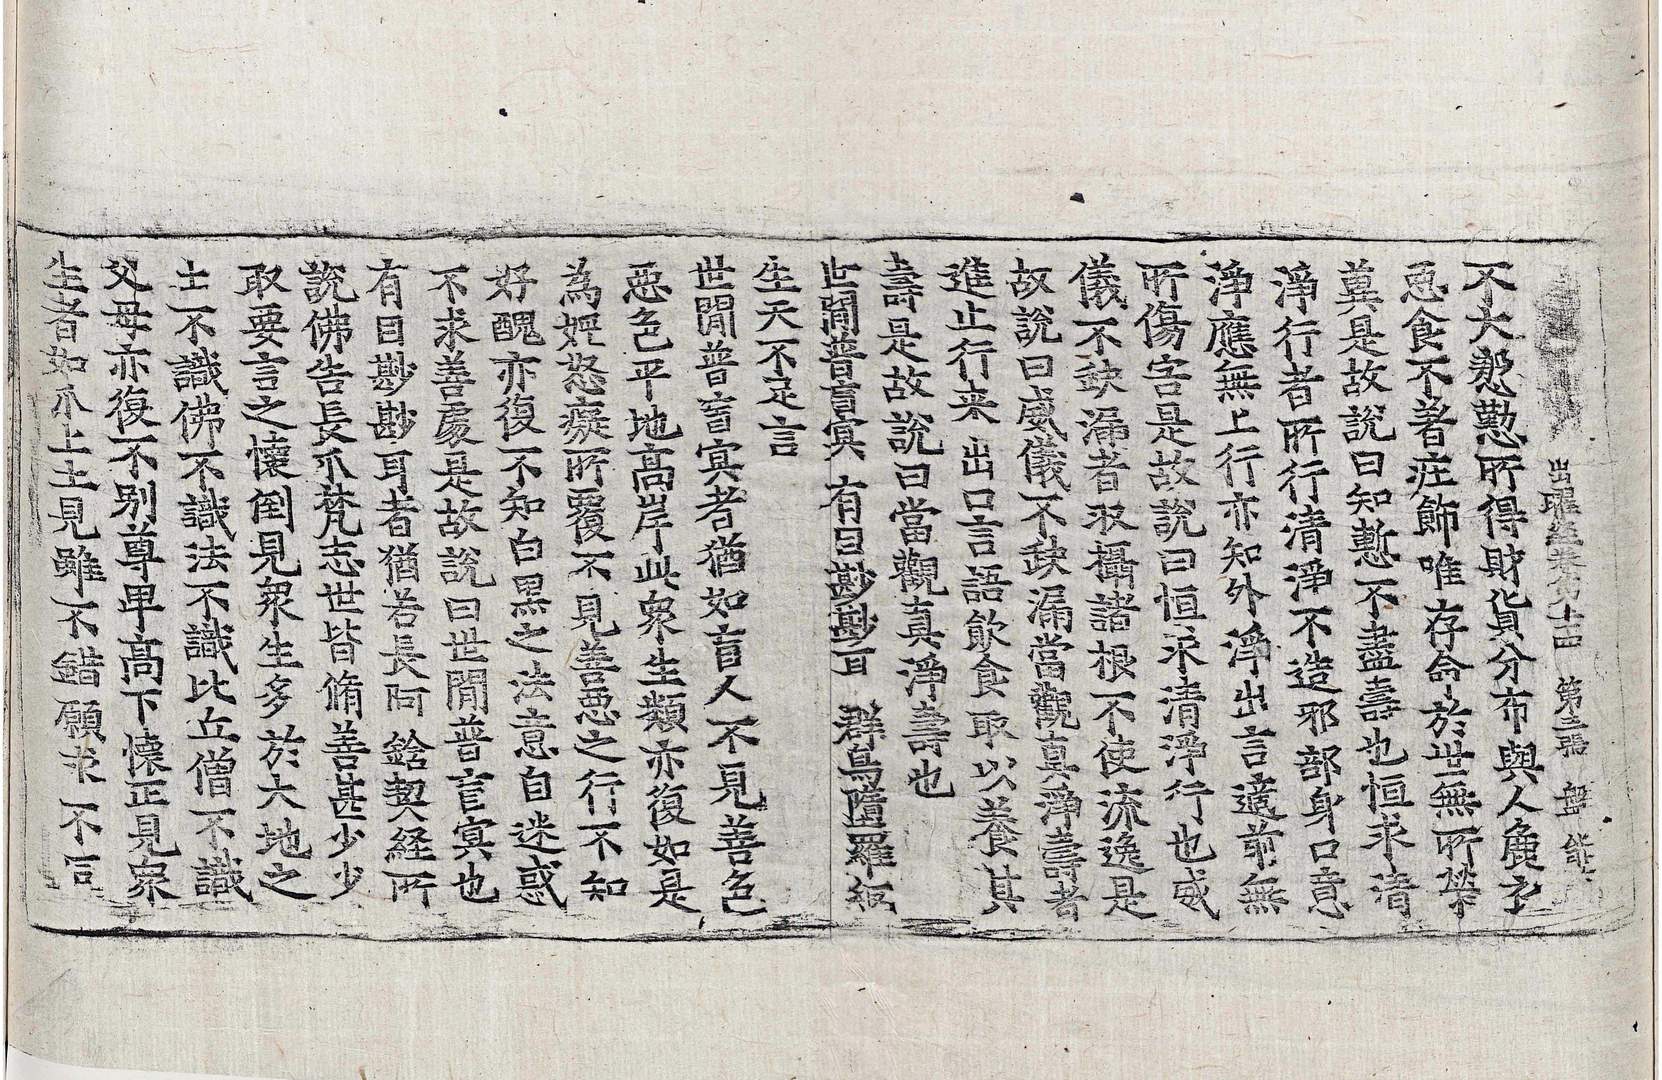 出曜經卷第十四 第三張 盤
不大慇懃所得財貨分布與人麁衣
惡食不著疪飾唯存命於世無所榮
冀是故說曰知慙不盡壽也恒求清
淨行者所行清淨不造邪部身口意
淨應無上行亦知外淨出言適前無
所傷害是故說曰恒求清淨行也威
儀不缺漏者収攝諸根不使流逸是
故說曰威儀不缺漏當觀真淨壽者
進止行来出口言語飲食取以養其
壽是故說曰當觀真淨壽也
世間普盲冥 有目尠尠耳 群鳥墮羅網
生天不足言
世間普盲冥者猶如盲人不見善色
惡色平地高岸此衆生類亦復如是
為婬怒癡所覆不見善惡之行不知
好醜亦復不知白黑之法意自迷惑
不求善處是故說曰世間普盲冥也
有目尠尠耳者猶若長阿鋡契経所
說佛告長爪梵志世皆脩善甚少少
取要言之懷倒見衆生多於大地之
土不識佛不識法不識比丘僧不識
父母亦復不別尊卑高下懷正見衆
生者如爪上土見雖不錯願求不同